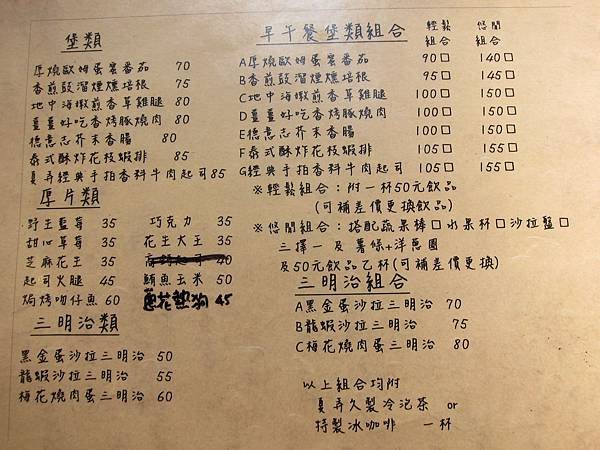 堡類
厚燒歐姆蛋蜜番茄 70
香煎鼓溜煙燻培根 75
地中海嫩煎香草雞腿 80
薑薑好吃香烤豚燒肉 80
E德意志芥末香腸 80
泰式酥炸花枝蝦排 85
真弄經典手拍香料牛肉起司 85
厚片類
野生藍莓 35 巧克力 35
甜心草莓 35 花生大王 35
芝麻花生 35 40
起司火腿 45 鮪魚玉米 50
焗烤吻仔魚 60 蔥花熱狗 45
三明治類
黑金蛋沙拉三明治 50
龍蝦沙拉三明治 55
梅花燒肉蛋三明治 60
早午餐堡類組合 輕鬆組合 悠閒組合
A厚燒歐姆蛋蜜番茄 90□ 140□
B香煎鼓溜煙燻培根 95□ 145□
C地中海嫩煎香草雞腿 100□ 150□
D薑薑好吃香烤豚燒肉 100□ 150□
E德意志芥末香腸 100□ 150□
F泰式酥炸花枝蝦排 105□ 155□
G經典手拍香料牛肉起司 105□ 155□
※輕鬆組合:附一杯50元飲品
(可補差價更換飲品)
※悠閒組合:搭配蔬果棒□水果杯□沙拉盤□
三擇一及薯條+洋蔥圈
及50元飲品乙杯(可補差價更換)
三明治組合
A黑金蛋沙拉三明治 70
B龍蝦沙拉三明治 75
C梅花燒肉蛋三明治 80
以上組合均附
真弄久製冷泡茶 or
特製冰咖啡 一杯